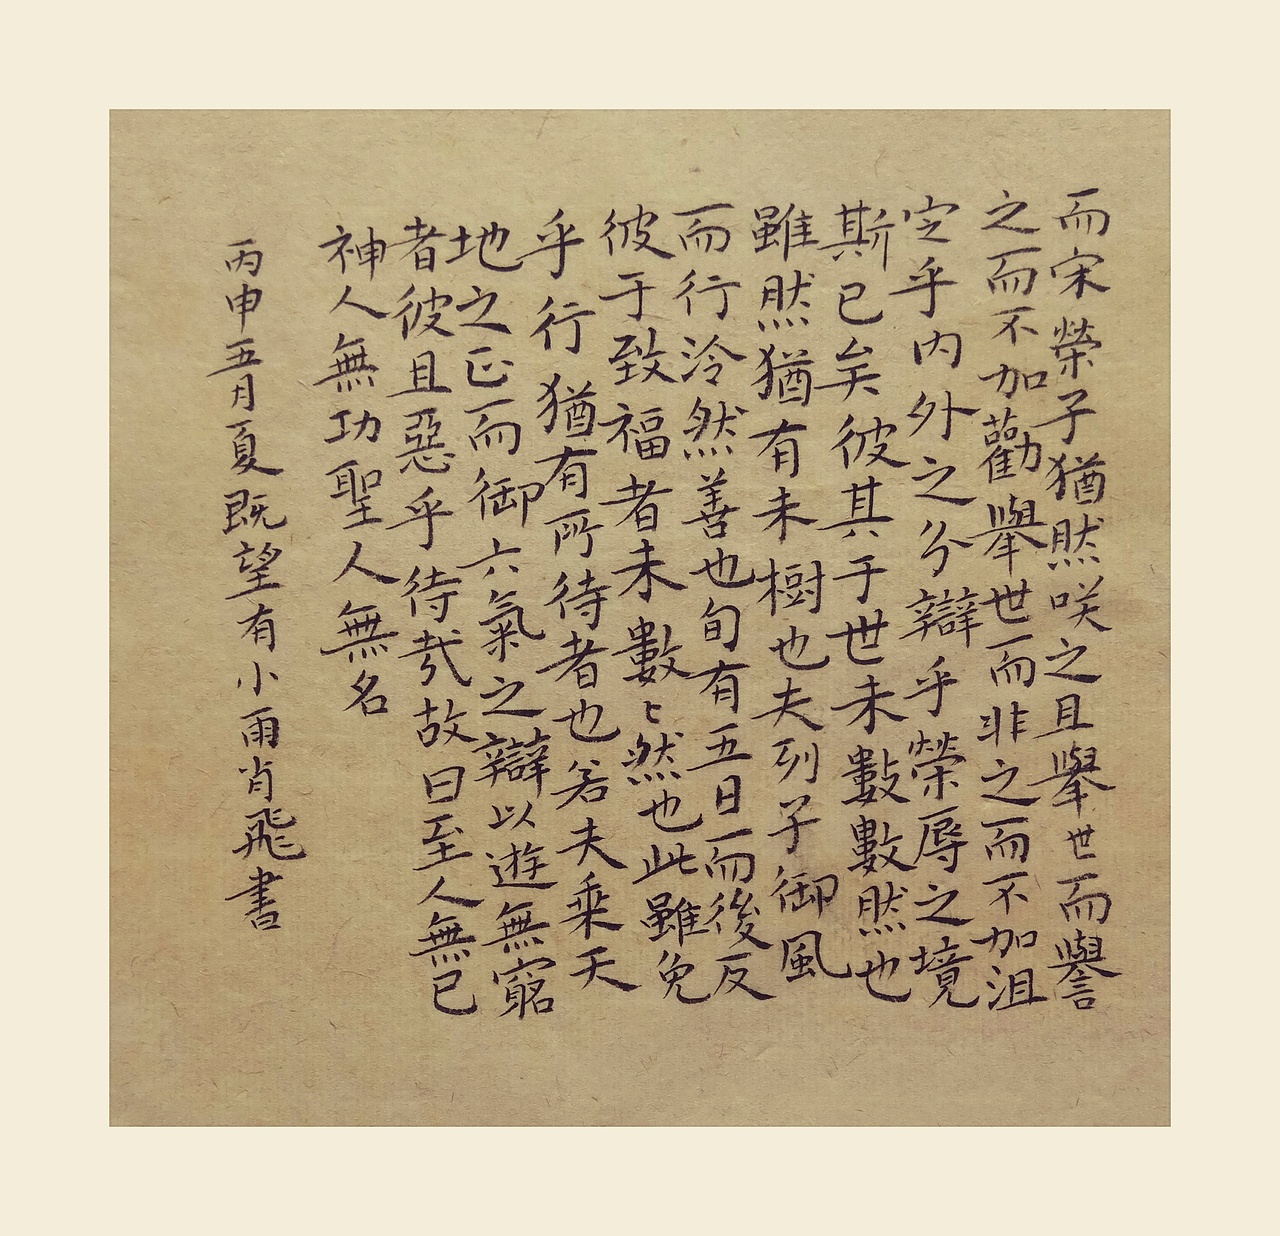 而宋榮子猶然咲之且舉世而譽
之而不加勸舉世而非之而不加沮
定乎內外之分辯乎榮辱之境
斯已矣彼其于世未數數然也
雖然猶有未樹也夫列子御風
而行泠然善也旬有五日而後反
彼于致福者未數〻然也此雖免
乎行猶有所待者也若夫乘天
地之正而御六氣之辯以遊無窮
者彼且惡乎待哉故曰至人無已
神人無功聖人無名
丙申五月夏既望有小雨肖飛書